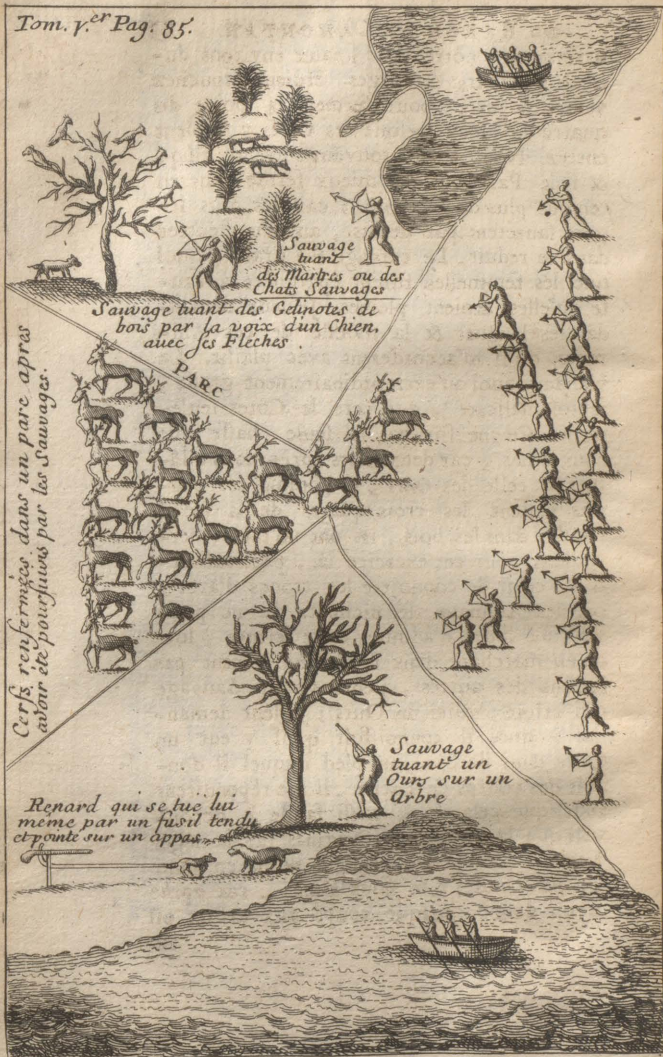 Tom. 1.er Pag. 85.
Sauvage
tuant
des Martres ou des
Chats Sauvages
Sauvage tuant des Gelinotes de
bois par la voix d'un Chien,
avec ses Fleches.
PARC
Cerfs renfermées dans un parc apres
avoir été poursuivis par les Sauvages.
Sauvage
tuant un
Ours sur un
Arbre
Renard qui se tüe lui
meme par un fusil tendu
et pointé sur un appas